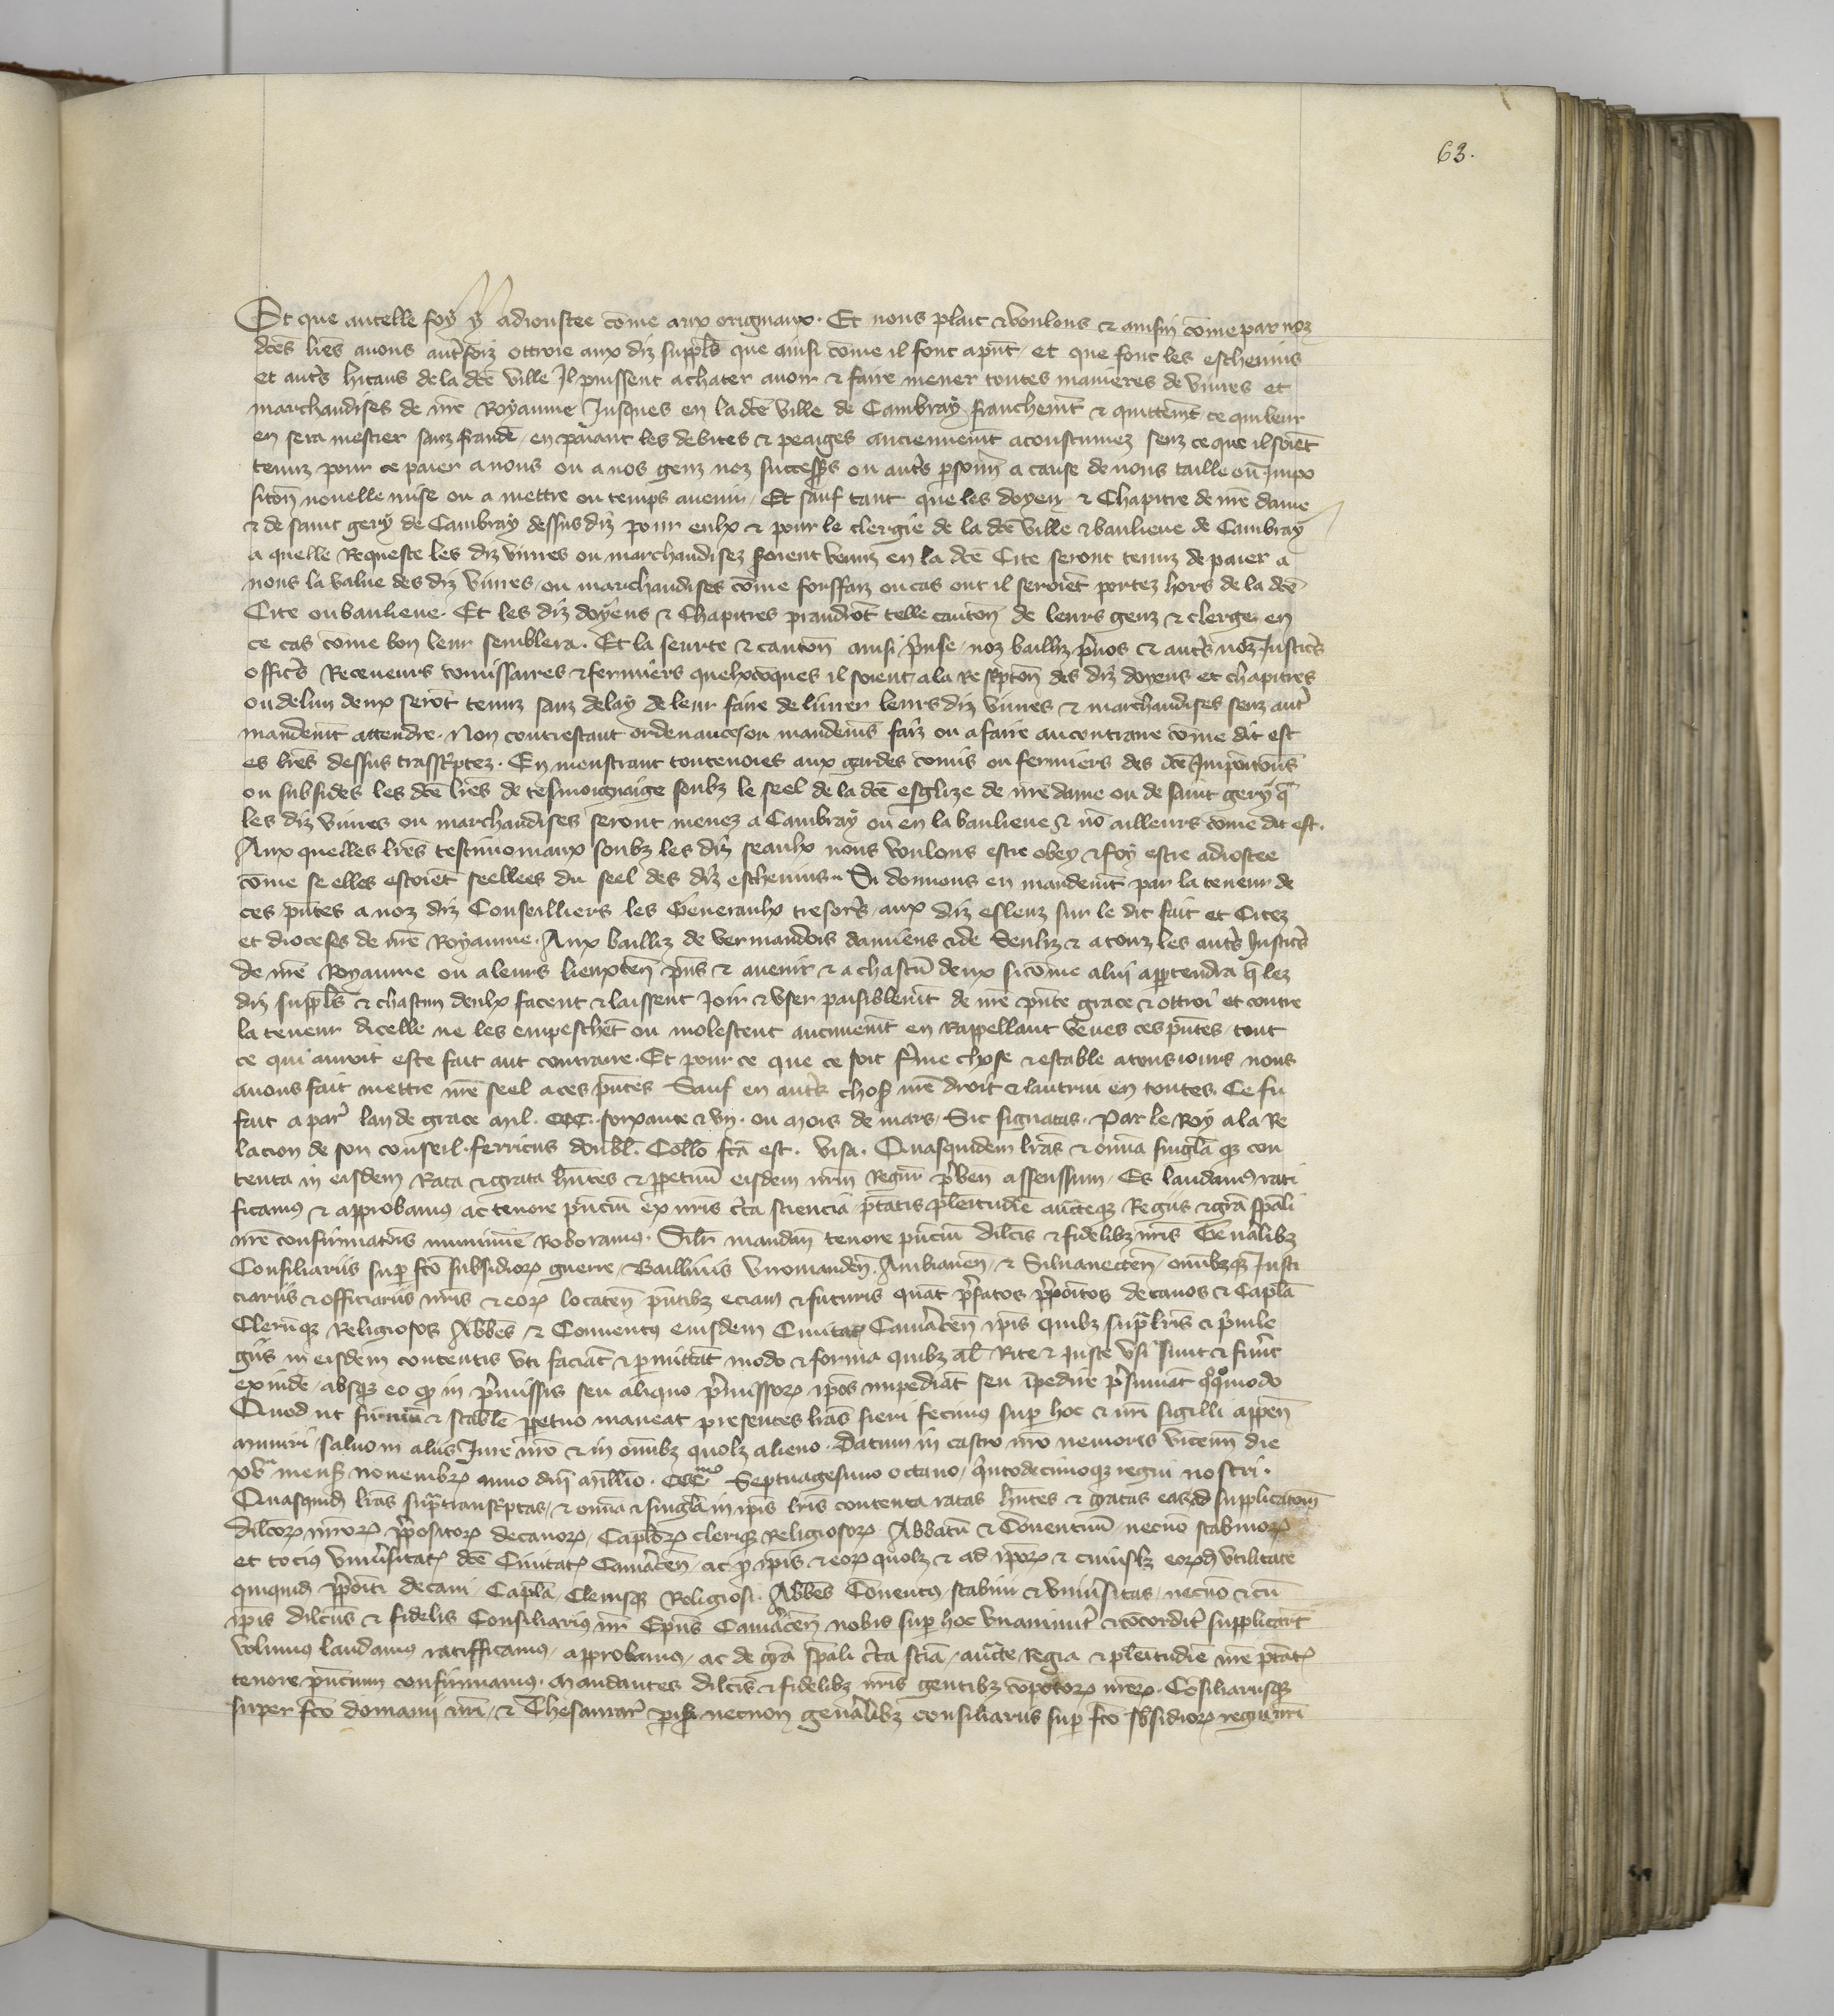 63.
Et que autelle foy y adioustee cōme aux originaux. Et nous plait & voulons & ainsin cōme par noz
dc̄es lr̄es auons autrefoiz ottroie aux diz suppl̄s que ainsi cōme il font apn̄t / et que font les escheuins
et autr̄s hitans de la dc̄e ville Il puissent achater auoir & faire mener toutes manieres de viures et
marchandises de nr̄e Royaume Jusques en la dc̄e ville de Cambray franchemt̄ & quittemt̄ ce qui leur
en sera mestier sanz fraude / en paiant les debites & peaiges anciennemt̄ acoustumez senz ce que il soiēt
tenuz pour ce paier a nous ou a nos genz noz success̄s ou autr̄s psonn̄ a cause de nous taille ou Impo
sitōn nouelle mise ou a mettre ou temps auenir / Et sauf tant que les doyen & Chapitre de nr̄e dame
& de saint gery de Cambray dessus diz pour eulx & pour le clergie de la dc̄e ville & banlieue de Cambray
a quelle Requeste les diz viures ou marchandisez soient venuz en la dc̄e Cite seront tenuz de paier a
nous la value des diz viures / ou marchandises cōme forffaiz ou cas out il seroiēt portez hors de la dc̄e
Cite ou banlieue. Et les diz doyens & Chapitres prandrōt telle cautōn de leurs genz & clerge en
ce cas cōme bon leur semblera. Et la seurte & cautōn ainsi pr̄nse / noz bailliz pr̄uos & autr̄s noz Justicr̄s
officr̄s Receueurs cōmissaires & fermiers quelxcōques il soient / a la Resceptōn des diz doyens et chapitres
ou de lun deux serōt tenuz sanz delay de leur faire deliurer leurs diz viures & marchandises senz autr̄
mandemt̄ attendre. Non contrestant ordenances ou mandems̄ faiz ou a faire au contraire cōme dit est
es lr̄es dessus trasscriptez. En monstrant touteuoies aux gardes cōmis ou fermiers des dc̄es Impositōns
ou subsides les dc̄es lr̄es de tesmoignaige soubz le seel de la dc̄e esglize de nr̄e dame ou de saint gery q̄
les diz viures ou marchandises seront menez a Cambray ou en la banlieue & nō ailleurs cōme dit est.
Aux quelles lr̄es testimoniaux soubz les diz seaulx nous voulons estre obey & foy estre adiostee
cōme se elles estoiēt seellees du seel des diz escheuins. Si donnons en mandemt̄ par la teneur de
ces pn̄tes a noz diz Conseilliers les Generaulx tresorr̄s / aux diz esleuz sur le dit fait et Citez
et dioceses de nr̄e Royaume. Aux bailliz de vermandois damiens & de Senliz & a touz les autr̄s Justicr̄s
de nr̄e Royaume ou a leurs lieuxten̄ pn̄s & auenir & a chascū deux si cōme a luy appertendra q̄ lez
diz suppl̄s & chascun deulx facent & laissent Joir & vser paisiblemt̄ de nr̄e pn̄te grace & ottroi et contre
la teneur dicelle ne les empeschēt ou molestent aucunemt̄ en Rappellant veues ces pn̄tes / tout
ce qui auroit este fait aut contraire. Et pour ce que ce soit fr̄me chose & estable a tousiours nous
auons fait mettre nr̄e seel a ces pn̄tes Sauf en autr̄s chos̄ nr̄e droit & lautrui en toutes. Ce fu
fait a par̄ lan de grace mil. CCC. soixante & vn. ou mois de mars. Sic signatas. Par le Roy a la Re
lacion de son conseil. ferricus doubl̄. Coll̄o fcā est. Visa. Quasquidem lr̄as & om̄a singl̄a q̄z con
tenta in eisdem Rata & grata hn̄tes & ppetuū eisdem nr̄m Regiū pr̄ben assenssum / Eas laudamus rati
ficamus & approbamus ac tenore pn̄ciū ex nr̄is cr̄ta sciencia ptātis plenitudīe auctēq̄z Regiis & grā spāli
nr̄e confirmatōis munimīe Roboramus. Silr̄ mandam̄ tenore pn̄ciū dilc̄is & fidelibz nr̄is Genālibz
Consiliariis sup fcō subsidiorꝝ guerre / Bailliuis Viromanden̄. Ambianen̄ / & Siluaneeten̄ / om̄ibzq̄z Justi
ciariis & officiariis nr̄is & eorꝝ locaten̄ pn̄tibz eciam & futuris quat̄ pr̄fatos pr̄poītos decanos & Capl̄a
Clerūq̄z Religiosos Abb̄es & Conuentus eiusdem Ciuitatꝭ Camācen̄ ip̄is quibz supra lr̄is & pr̄uile
giis in eisdem contentis vti faciāt & pmittāt modo & forma quibz al̄ Rite & Juste vsi sunt & fuer̄t
exinde / absq̄z eo qd̄ in pr̄missis seu aliquo pr̄missorꝝ ip̄os impediāt seu īpedire pr̄sumāt quoquōmodo
Quod ut firmū & stabīle ppetuo maneat presentes lr̄as fieri fecimus sup hoc & nr̄i sigilli appen̄
muniri / saluo in aliis Jure nr̄o & in om̄ibz quolz alieno. Datum in castro nr̄o nemoris vicenn̄ die
xva mens̄ nouembrꝭ anno dn̄i mill̄io. CCCmo Septuagesimo octauo / quintodecimoq̄z regni nostri.
Quasquid̄ lr̄as supratranscriptas / & om̄a & singl̄a in ip̄is lr̄is contenta ratas hn̄tes & gratas eas ad supplicatōm̄
dilcōrꝝ nr̄orꝝ pr̄positorꝝ decanorꝝ / Capl̄orꝝ cleriq̄z Religiosorꝝ Abbatū & Conuentuū / necnō scabinorꝝ
et tocius vniūsitatꝭ dc̄e Ciuitatꝭ Camācen̄ / ac p̄ ip̄is & eorꝝ quolz & ad ip̄orꝝ & cuiuslz eorꝝd̄ vtilitate
quiquid̄ pr̄poīti decani / Capl̄a / Clerusq̄z Religiosi. Abb̄es Conuentus / scabini & vniūsitas / necnō & cū
ip̄is dilcūs & fidelis Consiliarius nr̄ Ep̄us Camācen̄ nobis sup hoc vnanimitr̄ & cōcorditr̄ supplicar̄t
volumus laudamus ratifficamus / approbamus / ac de grā spāli cr̄ta sciā / aucte Regia & plenitudīe nr̄e ptātꝭ
tenore pn̄cium confirmamus. Mandantes dilc̄is & fidelibz nr̄is gentibz cōpotorꝝ nr̄orꝝ. Cōsiliariisq̄z
super fcō domanij nr̄i / & Thesaurar̄ parisꝭ necnon genālibz consiliariis sup fcō sbsidiorꝝ regni nr̄i